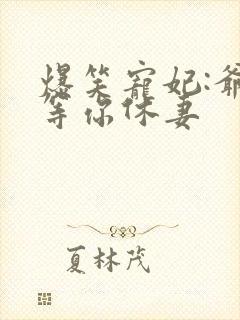 爆笑寵妃:爺
等你休妻
夏林茂